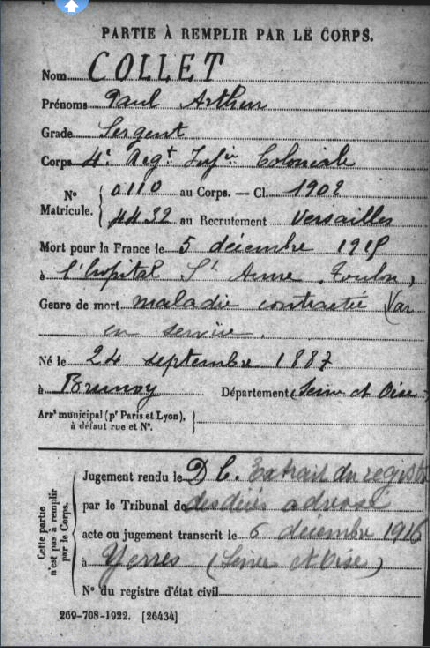 PARTIE À REMPLIR PAR LE CORPS.
Nom COLLET
Prénoms Paul Arthur
Grade Sergent
Corps 4e Regt Infie Coloniale
N° Matricule. { 0110 au Corps. — Cl. 1902
4432 au Recrutement Versailles
Mort pour la France le 5 décembre 1915
à l'hopital St Anne Toulon,
Genre de mort maladie contractée (Var
en service.
Né le 24 septembre 1887
à Brunoy Département (Seine et Oise)
Arrt municipal (pr Paris et Lyon), à défaut rue et N°.
Cette partie n'est pas à remplir par le Corps.
Jugement rendu le D C. Extrait du registre
par le Tribunal de des décès adressé
acte ou jugement transcrit le 6 décembre 1916
à Yerres (Seine et Oise)
N° du registre d'état civil
269-708-1922. [26434]